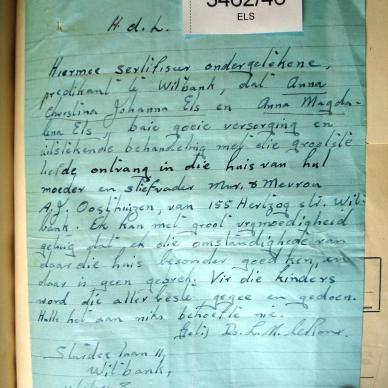 5462/40
ELS
H.d.L.
Hiermee sertifiseer ondergetekene,
predikant te Witbank, dat Anna
Christina Johanna Els en Anna Magda-
lena Els, baie goeie versorging en
uitstekende behandeling met die grootste
liefde ontvang in die huis van hul
moeder en stiefvader Mnr. & Mevrou
A.J. Oosthuizen, van 155 Hertzog str. Wit-
bank. Ek kan met groot vrymoedigheid
getuig dat ek die omstandighede van
daardie huis besonder goed ken, en
daar is geen gebrek. Vir die kinders
word die aller beste gegee en gedoen.
Hulle het aan niks behoefte nie.
Ds. L. M. le Roux
laan 11,
Witbank,